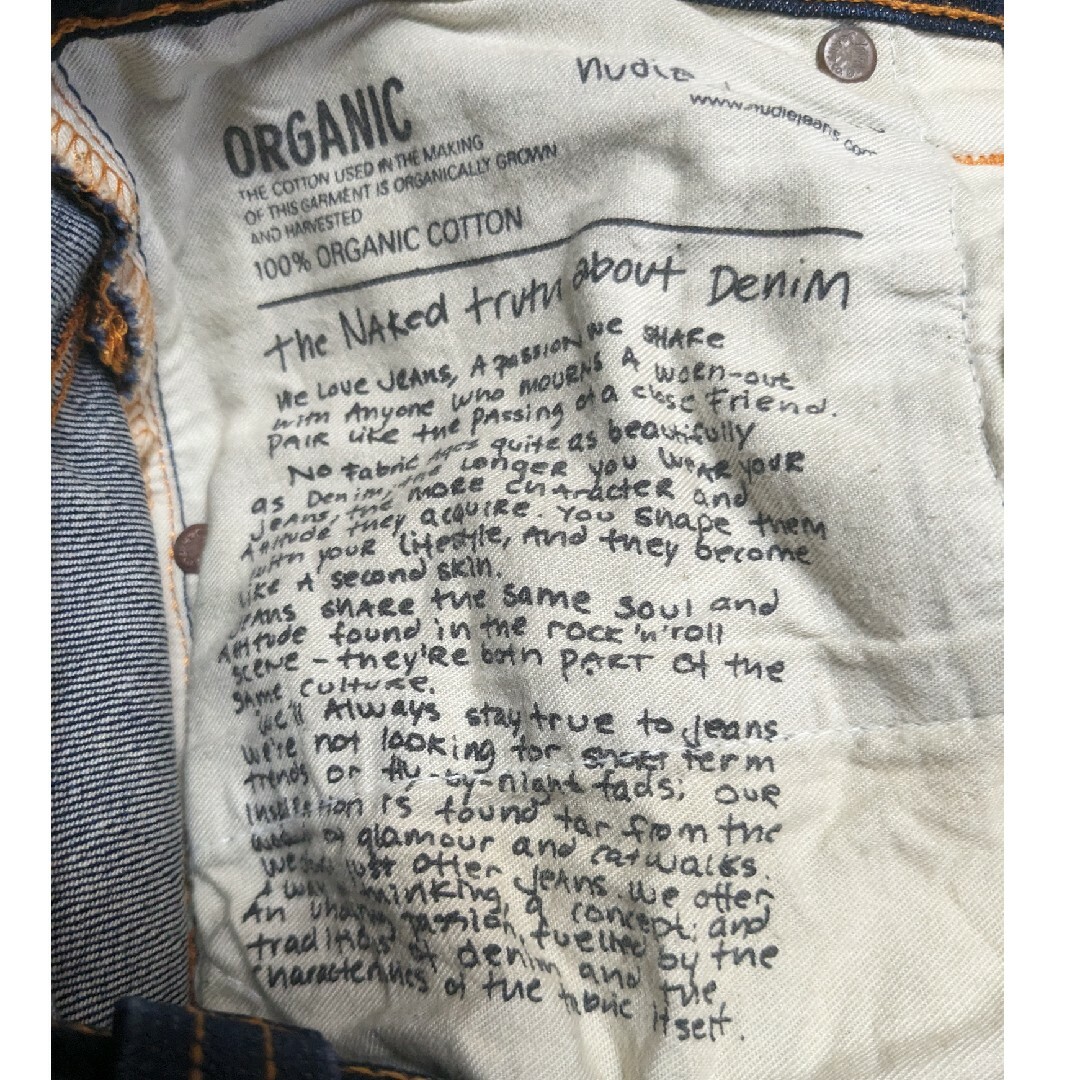 nudie
www.nudiejeans.com
ORGANIC
THE COTTON USED IN THE MAKING
OF THIS GARMENT IS ORGANICALLY GROWN
AND HARVESTED
100% ORGANIC COTTON
the NAKed truth about DeniM
We Love JEANS, A passion we SHARe
with Anyone who MOURNS A worn-out
PAIR like the PAssing of a close friend.
No fabric ages quite as beautifully
as Denim, the Longer you WeAR youR
jeans, the more character and
Attitude they acquire. You shape them
with youR lifestyle, And they become
like A second skin.
Jeans sHARe the same soul and
Attitude found in the rock 'n' roll
scene - they'Re both PART of the
same culture.
We'll Always stay true to jeans.
We're not looking for short term
trends or fly-by-night fads; ouR
Inspiration is found far from the
world of glamour and catwalks.
We don't just offer jeAns. We offer
A way thinking, a concept; and
An passion, fuelled by the
traditions of denim and the
characteristics of the fabric itself.